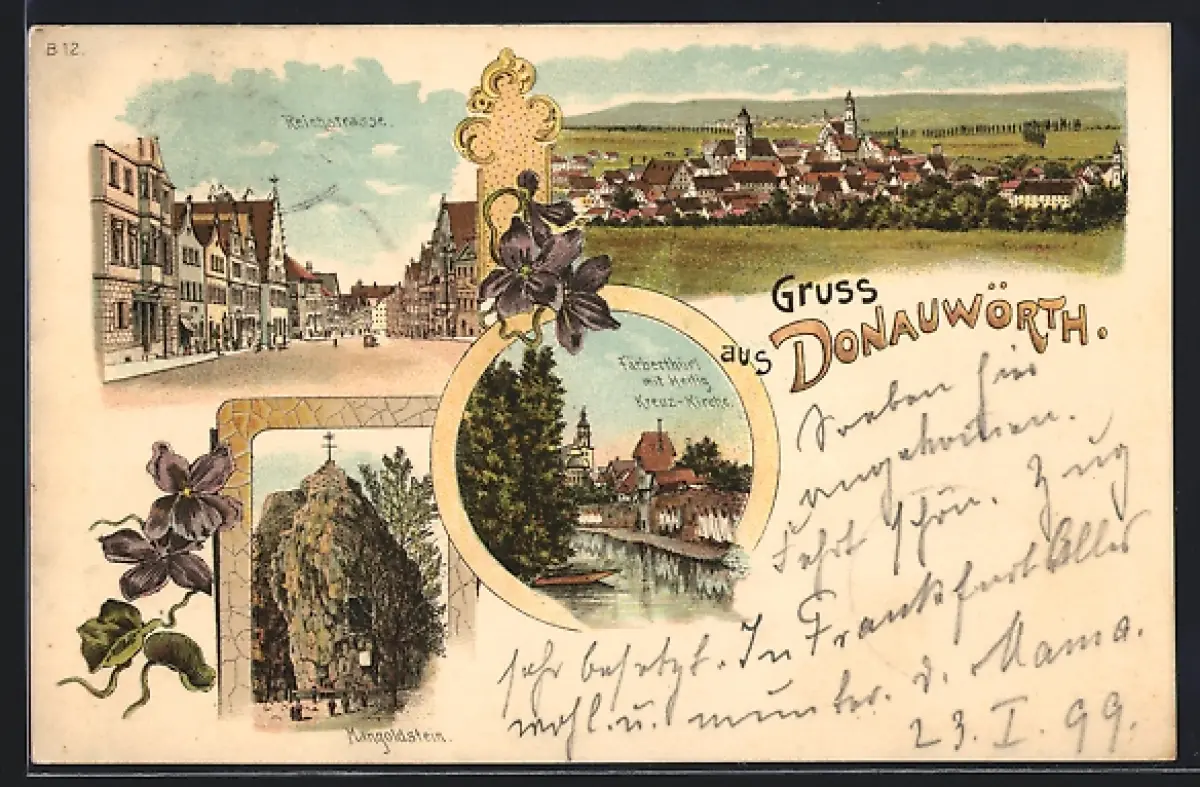 B 12.
Reichstrasse.
Gruss
aus DONAUWÖRTH.
Färberthürl
mit Heilig
Kreuz-Kirche.
Mangoldstein.
Soeben hier
angekommen.
Fahrt schön. Zug
sehr besetzt. In Frankfurt Alles
wohl. u. munter. d. Mama.
23. I. 99.